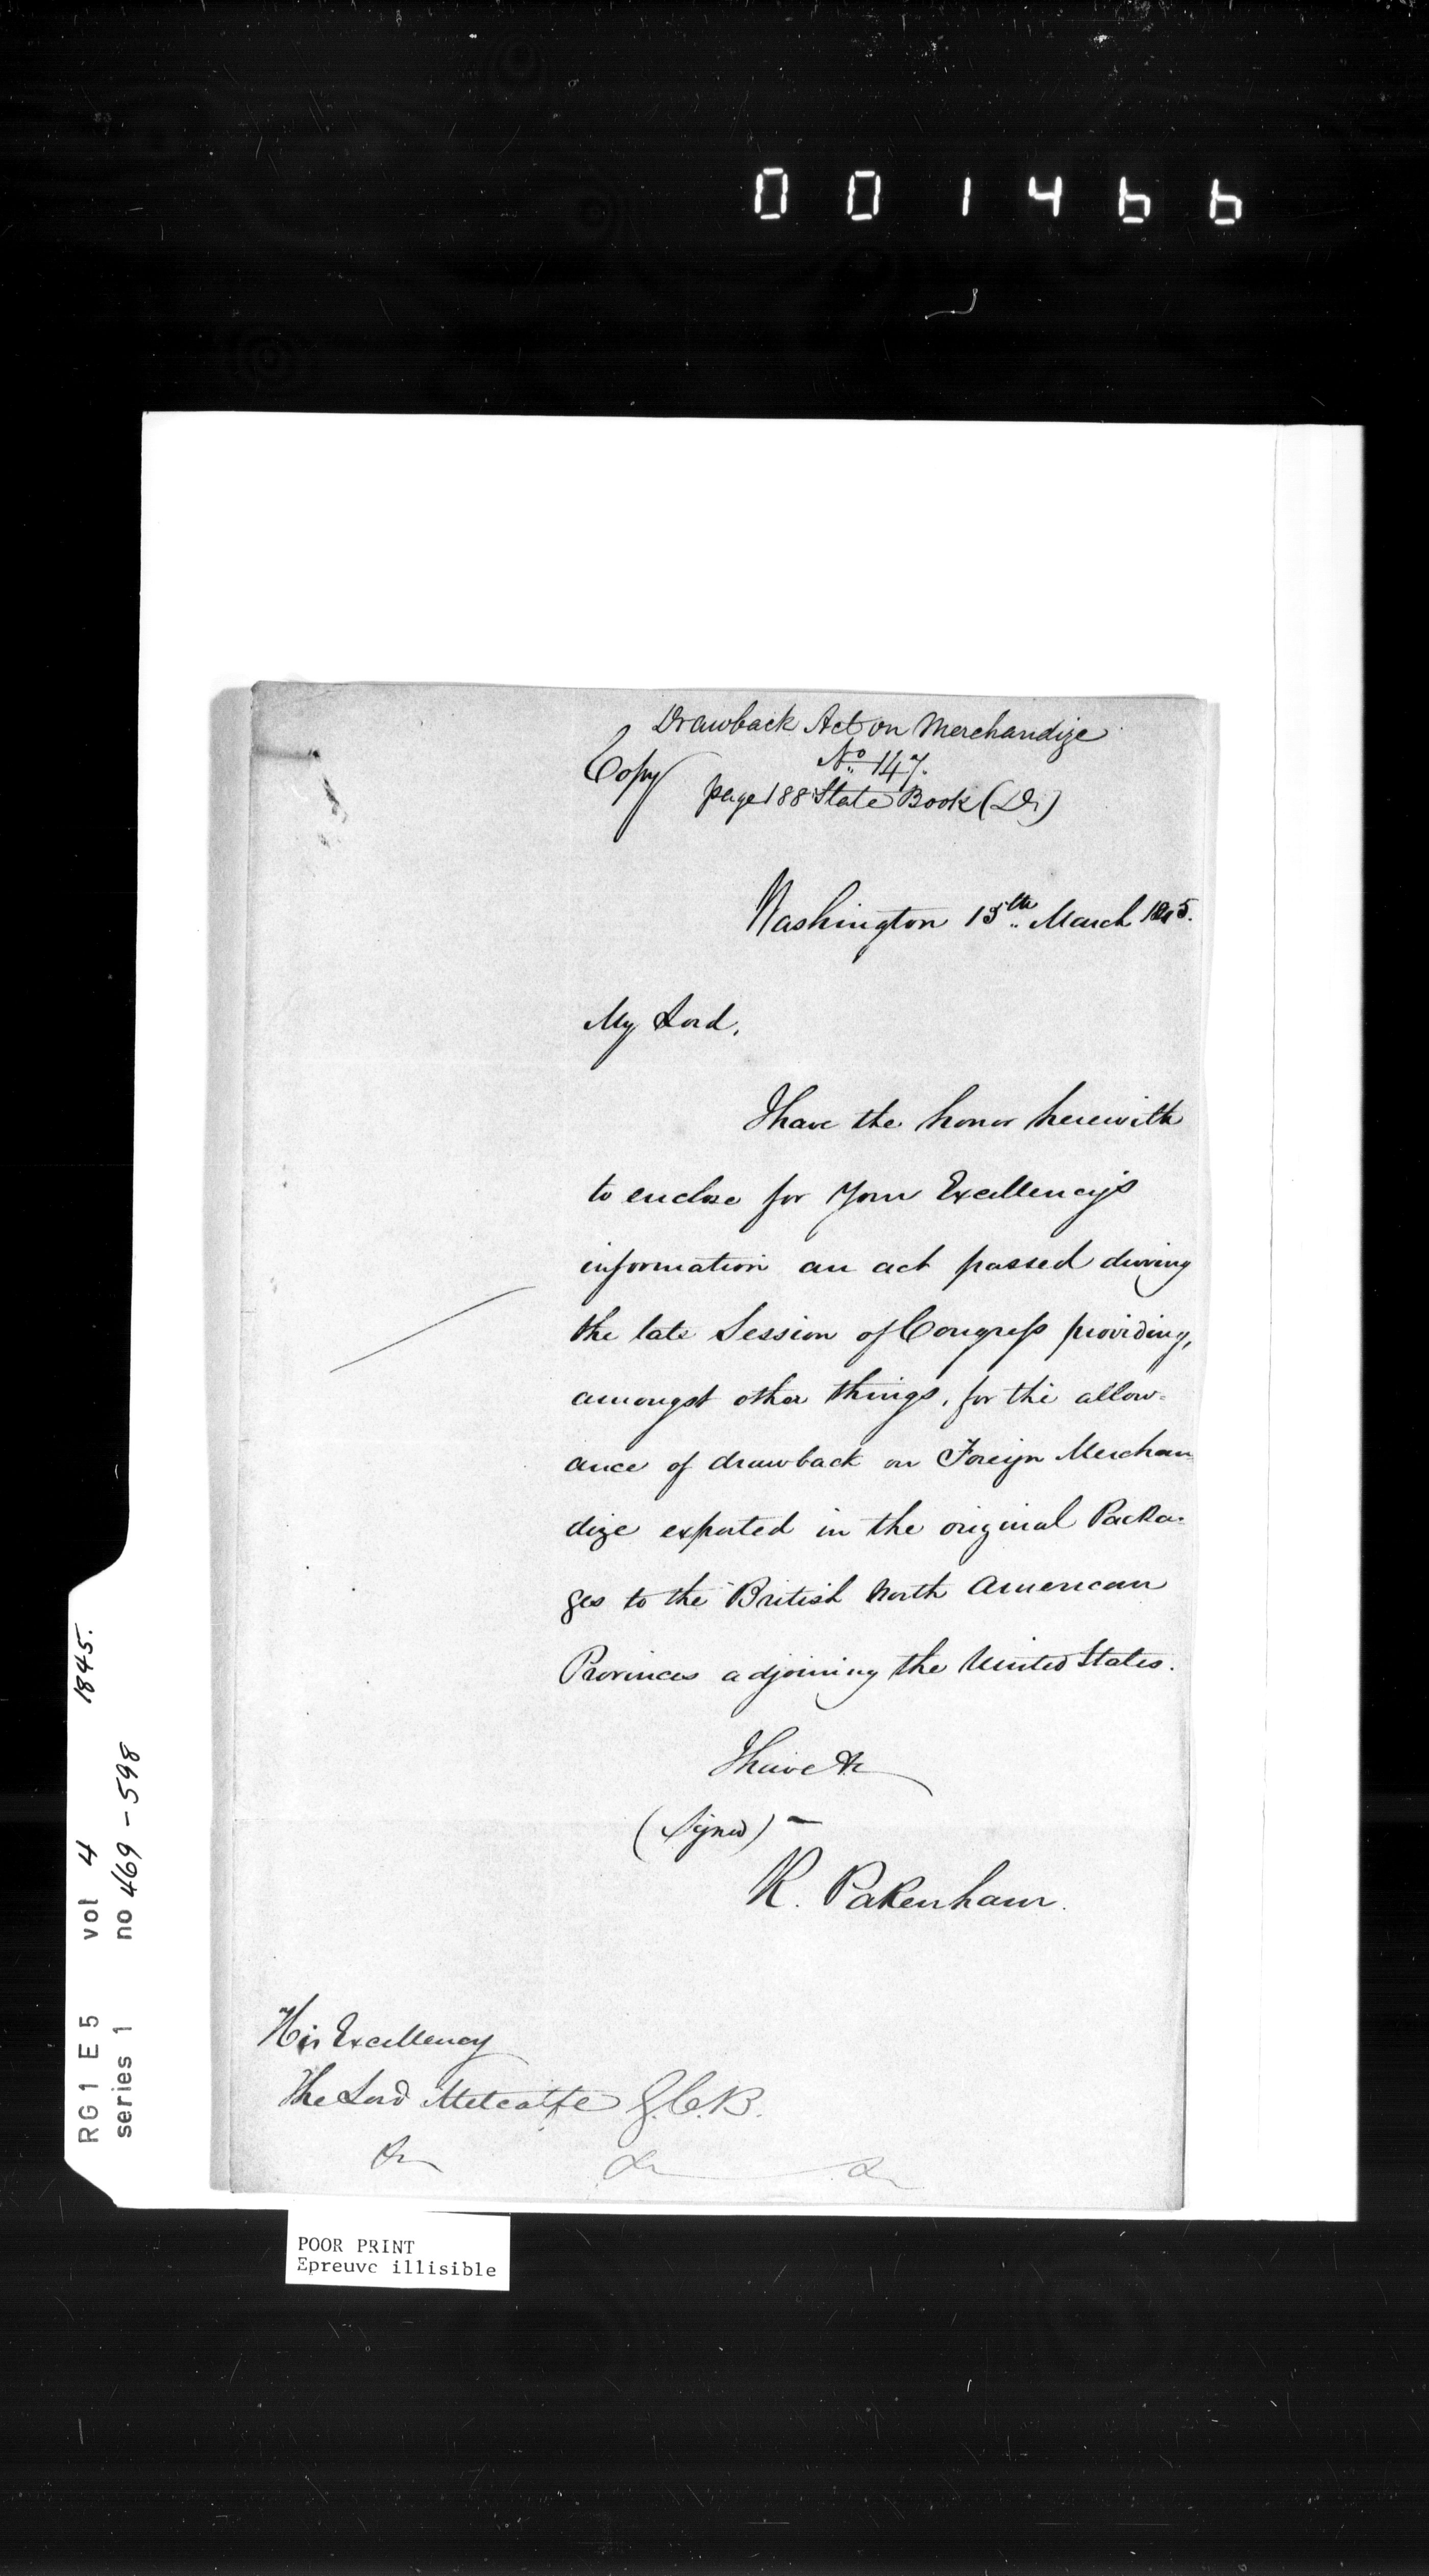 001466
Drawback Act on Merchandize
No. 147.
Copy
page 188 State Book (D)
Washington 15th March 1845.
My Lord,
I have the honor herewith
to enclose for Your Excellency's
information an act passed during
the late Session of Congress providing,
amongst other things, for the allow-
ance of drawback on Foreign Merchan
dize exported in the original Packa-
ges to the British North American
Provinces adjoining the United States.
I have &c
(Signed) -
R. Pakenham.
His Excellency
The Lord Metcalfe G.C.B.
&c &c &c
RG1 E5 vol 4 1845.
series 1 no 469-598
POOR PRINT
Epreuve illisible